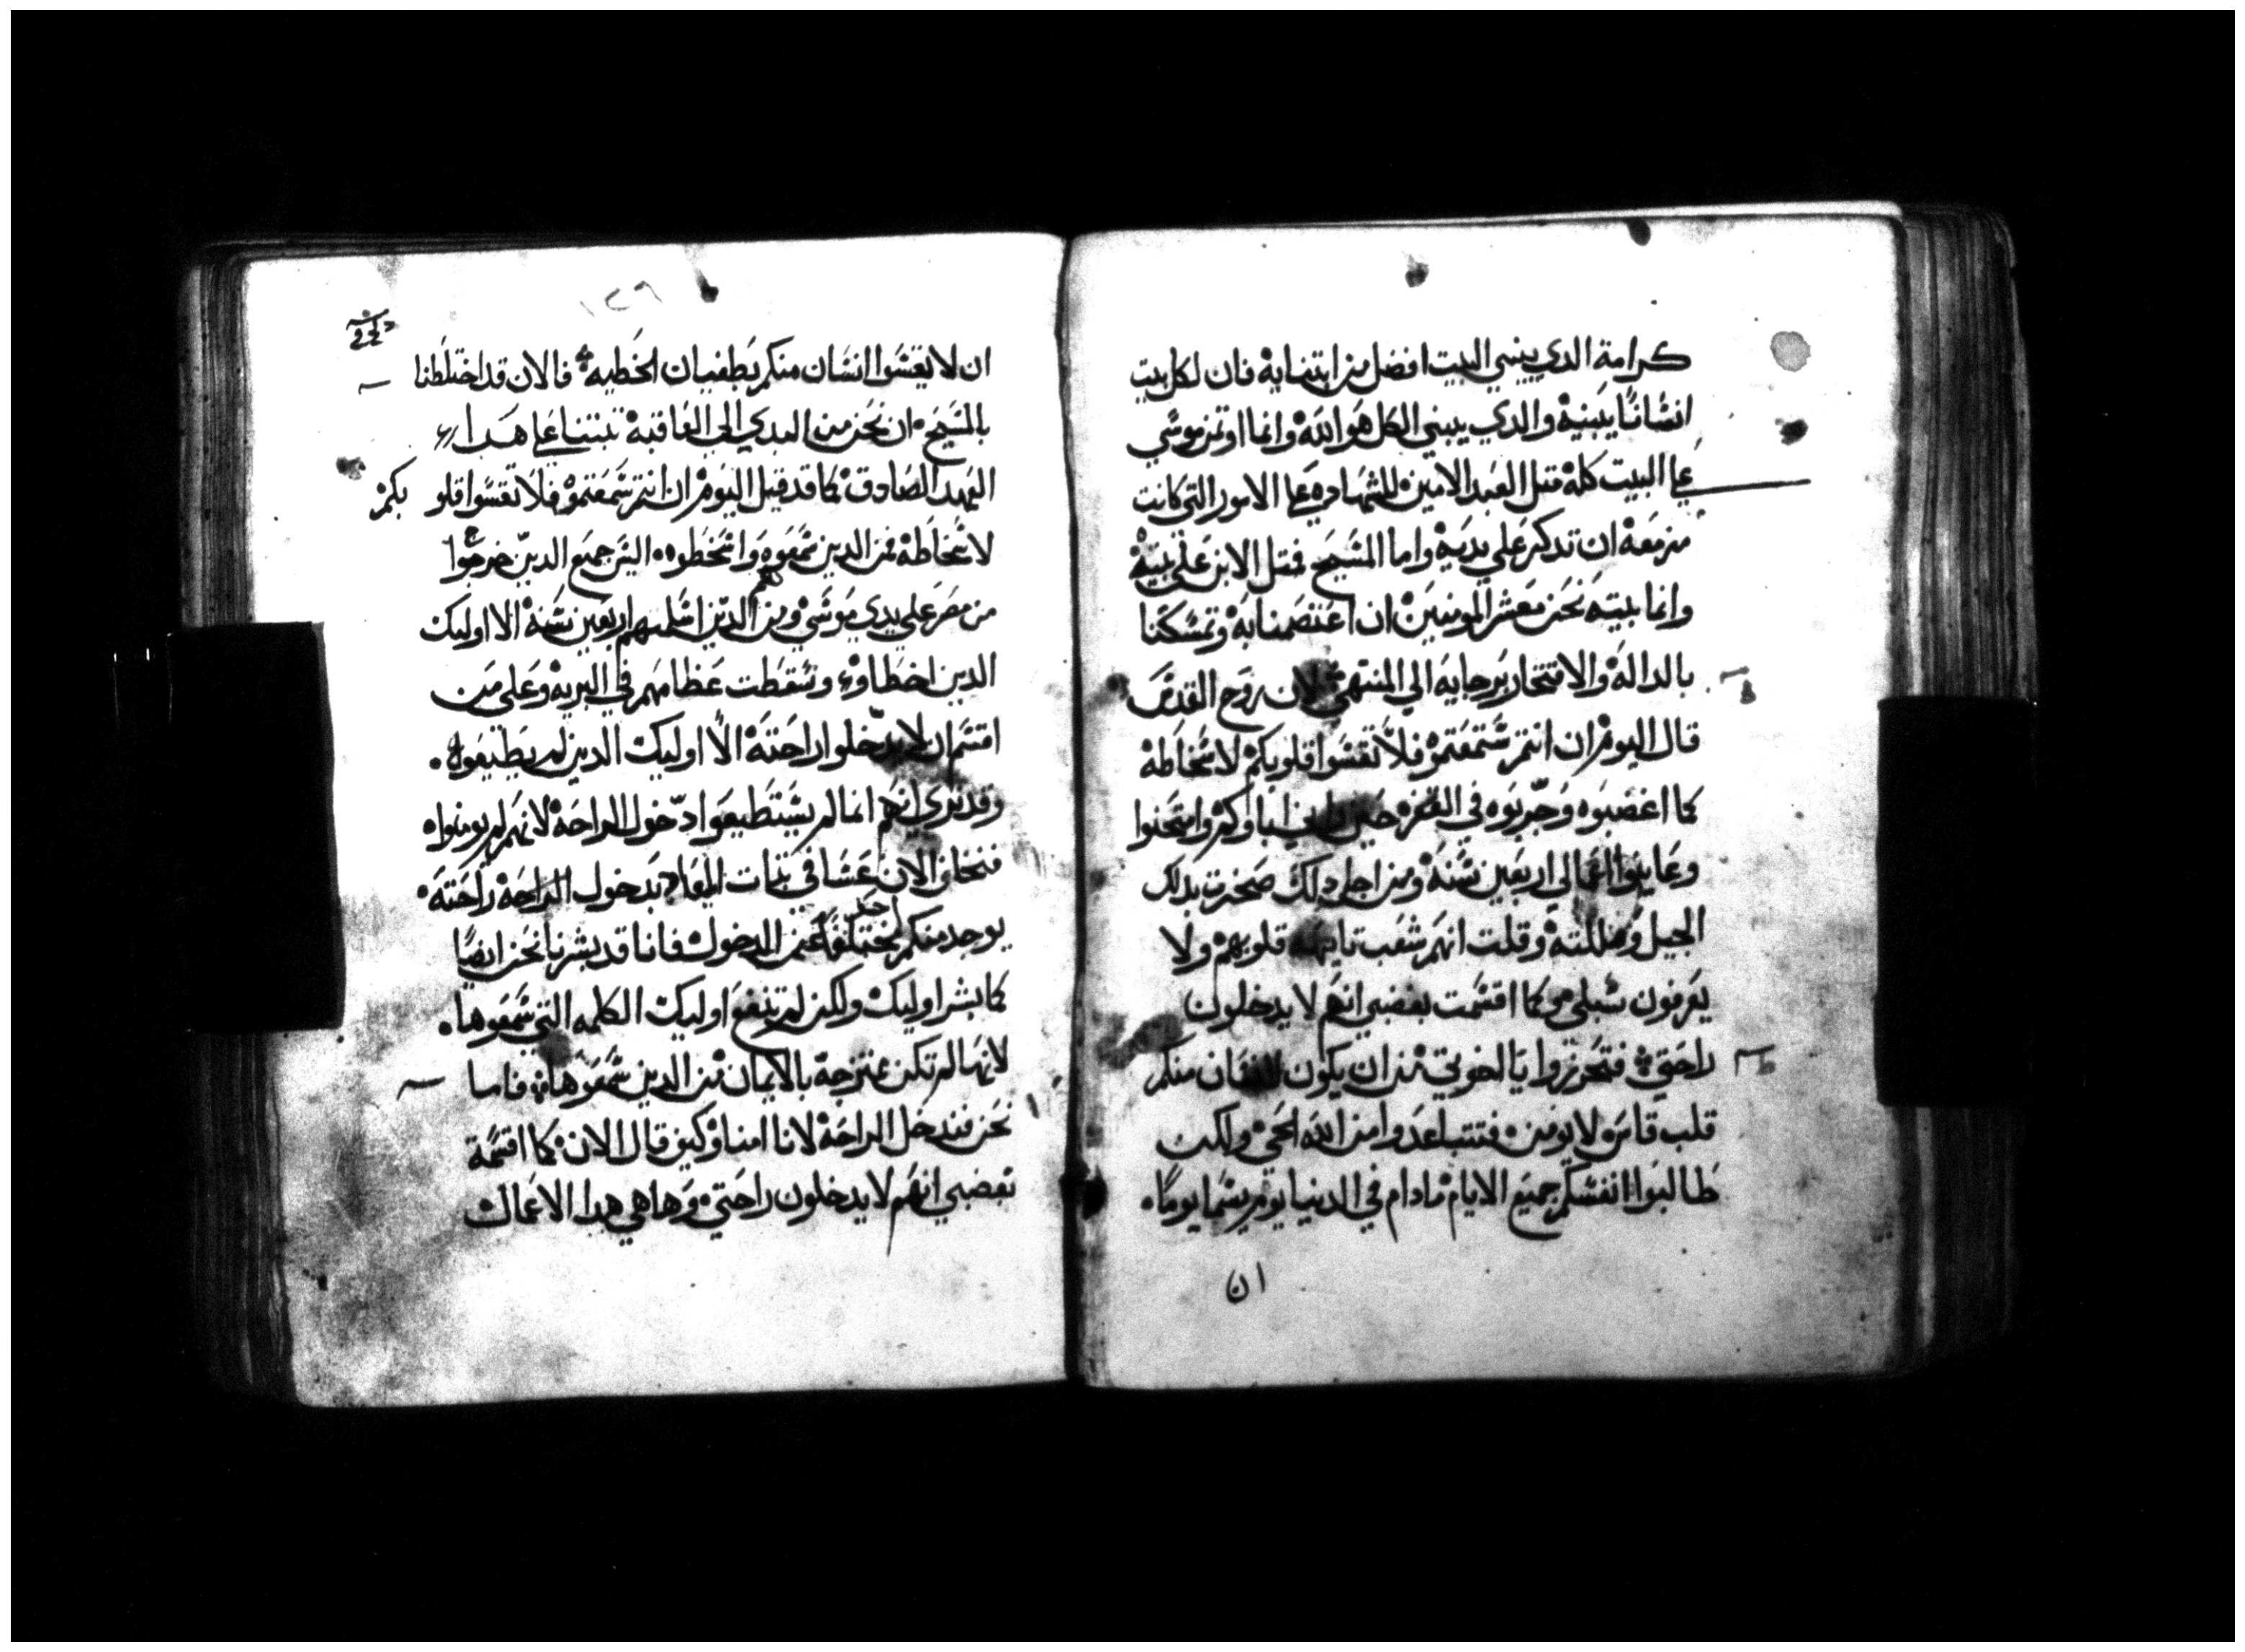 كرامة الدي يبني البيت افضل من ابتنايه فان لكل بيت
انسانا يبنيه والدي يبني الكل هو الله وانما اوتمن موسي
علي البيت كله متل العبد الامين للشهاده علي الامور التي كانت
مزمعه ان تدكر علي يديه واما المسيح فمتل الابن علي بيته
وانما بيته نحن معشر المومنين ان اعتصمنا به وتمسكنا
بالداله والافتخار برجايه الي المنتهي لان روح القدس
قال اليوم ان انتم سمعتموه فلا تقسوا قلوبكم لاسخاطه
كما اغضبوه وجربوه في القفره حين اباوكم وامتحنوا
وعاينوا اعمالي اربعين سنه ومن اجل دلك ضجرت بدلك
الجيل وقلت انهم شعب تايهه قلوبهم ولا
يعرفون سبلي كما اقسمت بغضبي انهم لا يدخلون
راحتي فتحرزوا يا اخوتي من ان يكون لانسان منكم
قلب قاس لا يومن فتتباعدوا من الله الحي ولكن
طالبوا انفسكم جميع الايام ما دام في الدنيا يوم يسما يوما
ان
١٢٩
ان لا تقسوا انسان منكم بطغيان الخطيه فالان قد اختلطنا
بالمسيح ان نحن من البدي الي العاقبه تبتنا علي هدا
العهد الصادق كما قد قيل اليوم ان انتم سمعتموه فلا تقسوا قلو بكم
لاسخاطه فمن الدين سمعوه واسخطوه اليس جميع الدين خرجوا
من مصر علي يدي موسي ومن الدين اربعين سنه الا اوليك
الدين اخطاوا وسقطت عظامهم في البريه وعلي من
اقسم ان لا يدخلوا راحته الا اوليك الدين لم يطيعوه
وقد نري انهم انما لم يستطيعوا دخول الراحه لانهم لم يومنوا
فنخاف الان عسا في تبات الميعاد بدخول الراحه راحته
يوجد منكم احد مختلفا عن الدخول فانا قد بشرنا نحن ايضا
كما بشر اوليك ولكن لم تنفع اوليك الكلمه التي سمعوها
لانها لم تكن ممتزجه بالايمان من الدين سمعوها فاما
نحن فندخل الراحه لانا امنا وكيف قال الان كما اقسمة
بغضبي انهم لا يدخلون راحتي وها هي هدا الاعمال